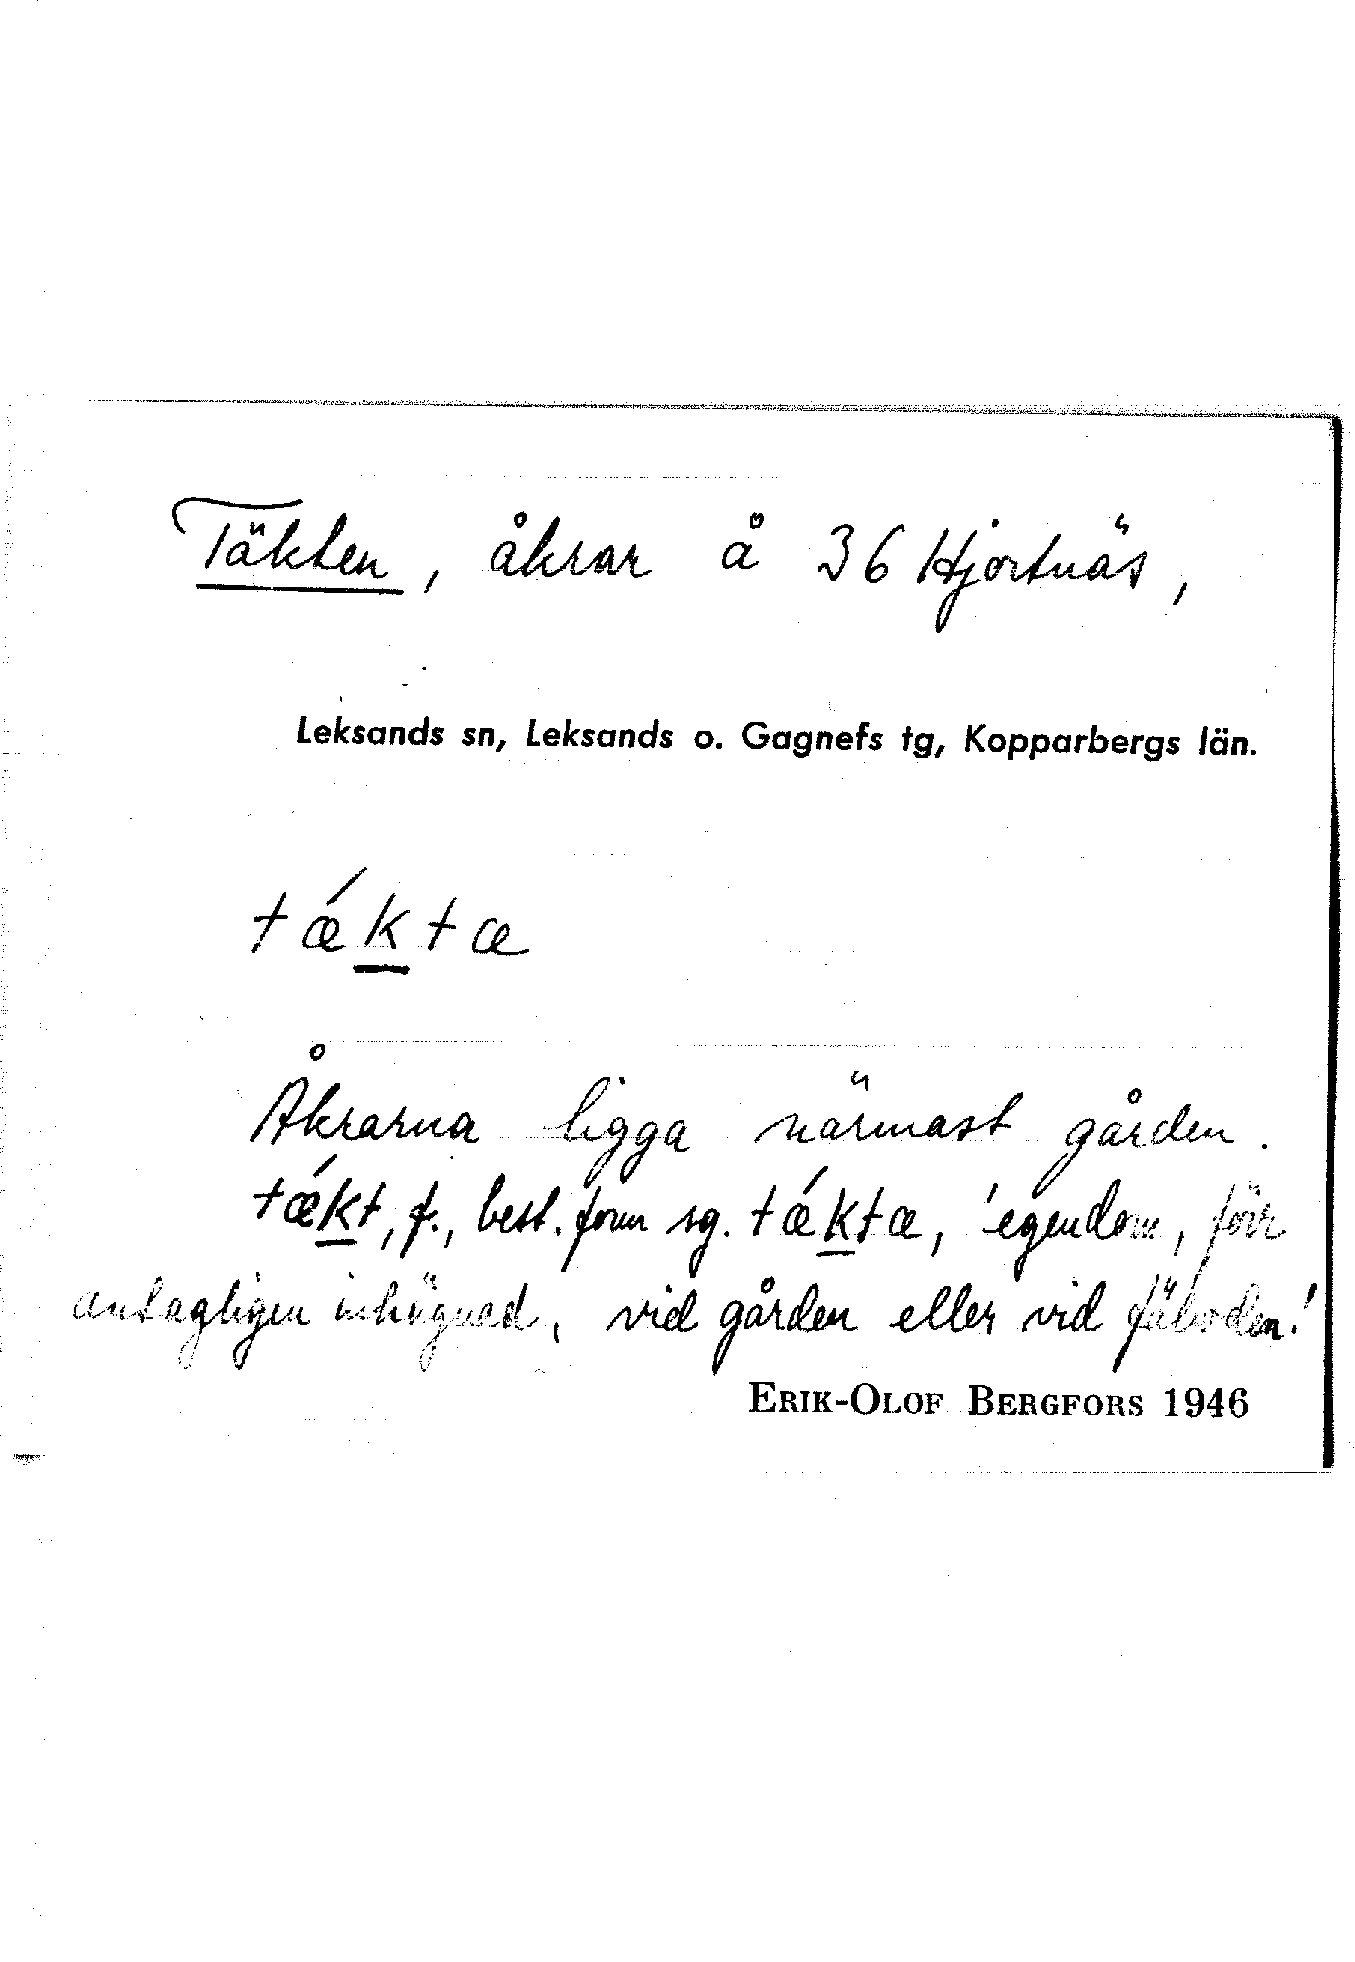 Täkten, åkrar å 36 Hjortnäs,
Leksands sn, Leksands o. Gagnefs tg, Kopparbergs län.
tǽk̲ta
Åkrarna ligga närmast gården.
tǽk̲t, f., best. form sg. tǽk̲ta, 'egendom, förr
antagligen inhägnad, vid gården eller vid fäboden.'
ERIK-OLOF BERGFORS 1946